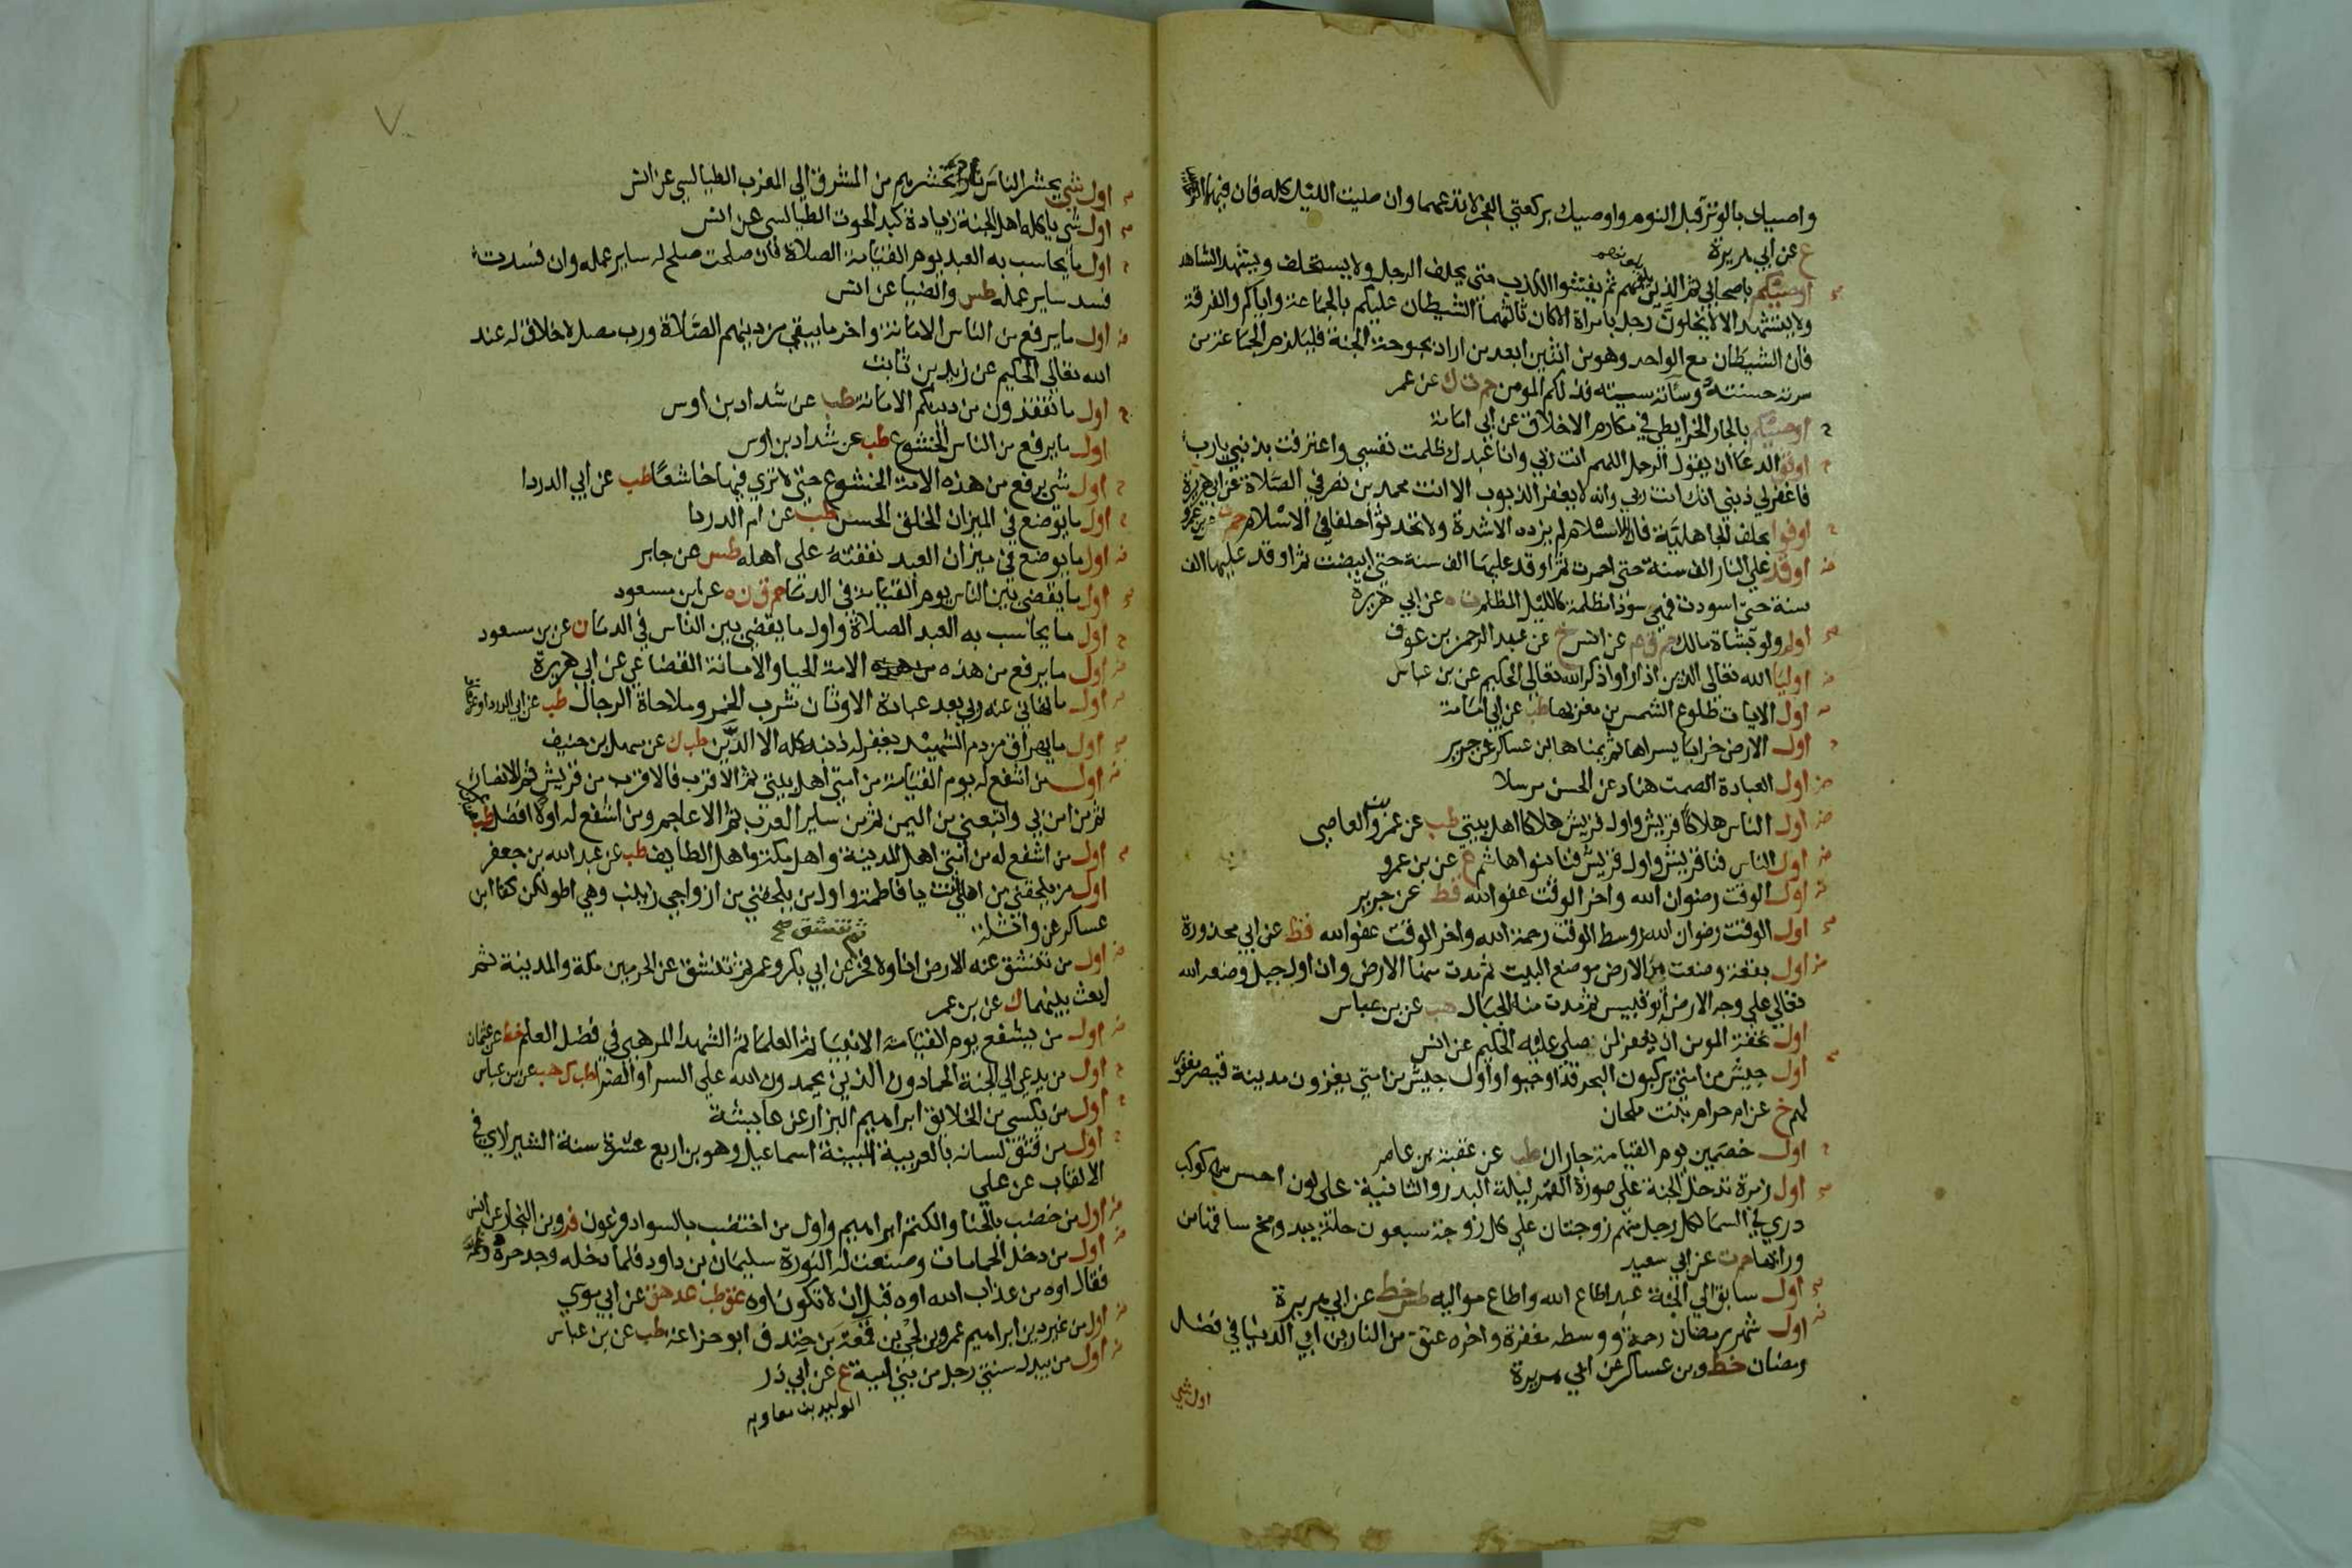 واصيك بالوتر قبل النوم واوصيك بركعتي الفجر لا تدعهما وان صليت الليل كله فان فيهما الرغائب
ع عن ابي هريرة
اوصيكم باصحابي ثم الذين يلونهم ثم يفشوا الكذب حتى يحلف الرجل ولا يستحلف ويشهد الشاهد
ولا يستشهد الا لا يخلون رجل بامراة الا كان ثالثهما الشيطان عليكم بالجماعة واياكم والفرقة
فان الشيطان مع الواحد وهو من اثنين ابعد من اراد بحبوحة الجنة فليلزم الجماعة من
سرته حسنته وسآته سيئته فذلكم المومن حم ت ك عن عمر
اوصيكم بالجار الخرايطي في مكارم الاخلاق عن ابي امامة
اوفق الدعا ان يقول الرجل اللهم انت ربي وانا عبدك ظلمت نفسي واعترفت بذنبي يا رب
فاغفر لي ذنبي انك انت ربي وانه لا يغفر الذنوب الا انت محمد بن نصر في الصلاة عن ابي هريرة
اوفوا بحلف الجاهلية فان الاسلام لم يزده الا شدة ولا تحدثوا حلفا في الاسلام حم ت عن بن عمرو
اوقد على النار الف سنة حتى احمرت ثم اوقد عليها الف سنة حتى ابيضت ثم اوقد عليها الف
سنة حتى اسودت فهي سودا مظلمة كالليل المظلم ت ه عن ابي هريرة
اولم ولو بشاة مالك حم ق عن انس خ عن عبد الرحمن بن عوف
اوليا الله تعالى الذين اذا راوا ذكر الله تعالى الحكيم عن بن عباس
اول الايات طلوع الشمس من مغربها طب عن ابي امامة
اول الارض خرابا يسراها ثم يمناها بن عساكر عن جرير
اول العبادة الصمت هناد عن الحسن مرسلا
اول الناس هلاكا قريش واول قريش هلاكا اهل بيتي طب عن عمرو بن العاصي
اول الناس فنا قريش واول قريش فنا بنوا هاشم ع عن بن عمرو
اول الوقت رضوان الله واخر الوقت عفو الله قط عن جرير
اول الوقت رضوان الله ووسط الوقت رحمة الله واخر الوقت عفو الله قط عن ابي محذورة
اول بقعة وضعت من الارض موضع البيت ثم مدت منها الارض وان اول جبل وضعه الله
تعالي علي وجه الارض ابو قبيس ثم مدت منه الجبال هب عن بن عباس
اول تحفة المومن ان يغفر لمن صلي عليه الحكيم عن انس
اول جيش من امتي يركبون البحر قد اوجبوا واول جيش من امتي يغزون مدينة قيصر مغفور
لهم خ عن ام حرام بنت ملحان
اول خصمين يوم القيامة جاران طب عن عقبة بن عامر
اول زمرة تدخل الجنة على صورة القمر ليلة البدر والثانية على لون احسن كوكب
دري في السما لكل رجل منهم زوجتان علي كل زوجة سبعون حلة يبدو مخ ساقها من
ورائها حم ت عن ابي سعيد
اول سابق الي الجنة عبد اطاع الله واطاع مواليه طس خط عن ابي هريرة
اول شهر رمضان رحمة ووسطه مغفرة واخره عتق من النار بن ابي الدنيا في فضل
رمضان خط وبن عساكر عن ابي هريرة
اول شي
اول شي يحشر الناس نار تحشرهم من المشرق الي المغرب الطيالسي عن انس
اول شي ياكله اهل الجنة زيادة كبد الحوت الطيالسي عن انس
اول ما يحاسب به العبد يوم القيامة الصلاة فان صلحت صلح له ساير عمله وان فسدت
فسد ساير عمله طس والضيا عن انس
اول ما يرفع من الناس الامانة واخر ما يبقي من دينهم الصلاة ورب مصل لا خلاق له عند
الله تعالي الحكيم عن زيد بن ثابت
اول ما تفقدون من دينكم الامانة طب عن شداد بن اوس
اول ما يرفع من الناس الخشوع طب عن شداد بن اوس
اول شي يرفع من هذه الامة الخشوع حتى لا تري فيها خاشعا طب عن ابي الدردا
اول ما يوضع في الميزان الخلق الحسن طب عن ام الدردا
اول ما يوضع في ميزان العبد نفقته على اهله طس عن جابر
اول ما يقضى بين الناس يوم القيامة في الدما حم ق ن ه عن ابن مسعود
اول ما يحاسب به العبد الصلاة واول ما يقضى بين الناس في الدما ن عن بن مسعود
اول ما يرفع من هذه الامة الحيا والامانة القضاعي عن ابي هريرة
اول ما نهاني عنه ربي بعد عبادة الاوثان شرب الخمر وملاحاة الرجال طب عن ابي الدردا وعن معاذ
اول ما يهراق من دم الشهيد يغفر له ذنبه كله الا الدين طب ك عن سهل بن حنيف
اول من اشفع له يوم القيامة من امتي اهل بيتي ثم الاقرب فالاقرب من قريش ثم الانصار
ثم من امن بي واتبعني من اليمن ثم من ساير العرب ثم الاعاجم ومن اشفع له اولا افضل طب
اول من اشفع له من امتي اهل المدينة واهل مكة واهل الطايف طب عن عبد الله بن جعفر
اول من يلحقني من اهلي انت يا فاطمة واول من يلحقني من ازواجي زينب وهي اطولكن كفا ابن
عساكر عن واثلة
ثم تنشق صح
اول من تنشق عنه الارض انا ولا فخر عن ابي بكر وعمر ثم تنشق عن الحرمين مكة والمدينة ثم
ابعث بينهما ك عن بن عمر
اول من يشفع يوم القيامة الانبيا ثم العلما ثم الشهدا المرهبي في فضل العلم خط عن عثمان
اول من يدعي الي الجنة الحمادون الذين يحمدون الله علي السرا والضرا طب ك هب عن بن عباس
اول من يكسي من الخلائق ابراهيم البزار عن عايشة
اول من فتق لسانه بالعربية المبينة اسماعيل وهو بن اربع عشرة سنة الشيرازي في
الالقاب عن علي
اول من خضب بالحنا والكتم ابراهيم واول من اختضب بالسواد فرعون فر وبن النجار عن انس
اول من دخل الحمامات وصنعت له النورة سليمان بن داود فلما دخله وجد حره وغمه
فقال اوه من عذاب الله اوه قبل ان لا تكون اوه عق طب عد هق عن ابي موسي
اول من غير دين ابراهيم عمرو بن لحي بن قمعة بن خندف ابو خزاعة طب عن بن عباس
اول من يبدل سنتي رجل من بني امية ع عن ابي ذر
الوليد بن معاويه